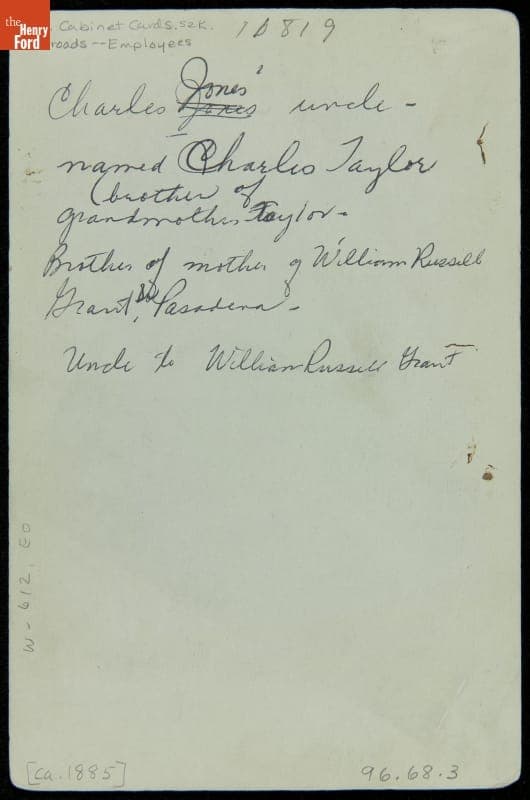 the Henry Ford
Cabinet Cards. 52K.
roads--Employees
1D819
Jones'
Charles Jones uncle -
named Charles Taylor
(brother of
grandmother Taylor -
Brother of mother of William Russell
Grant, Pasadena -
Uncle to William Russell Grant
W-612.EO
[ca. 1885]
96.68.3